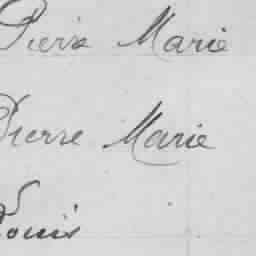 Pierre Marie
Pierre Marie
Louis